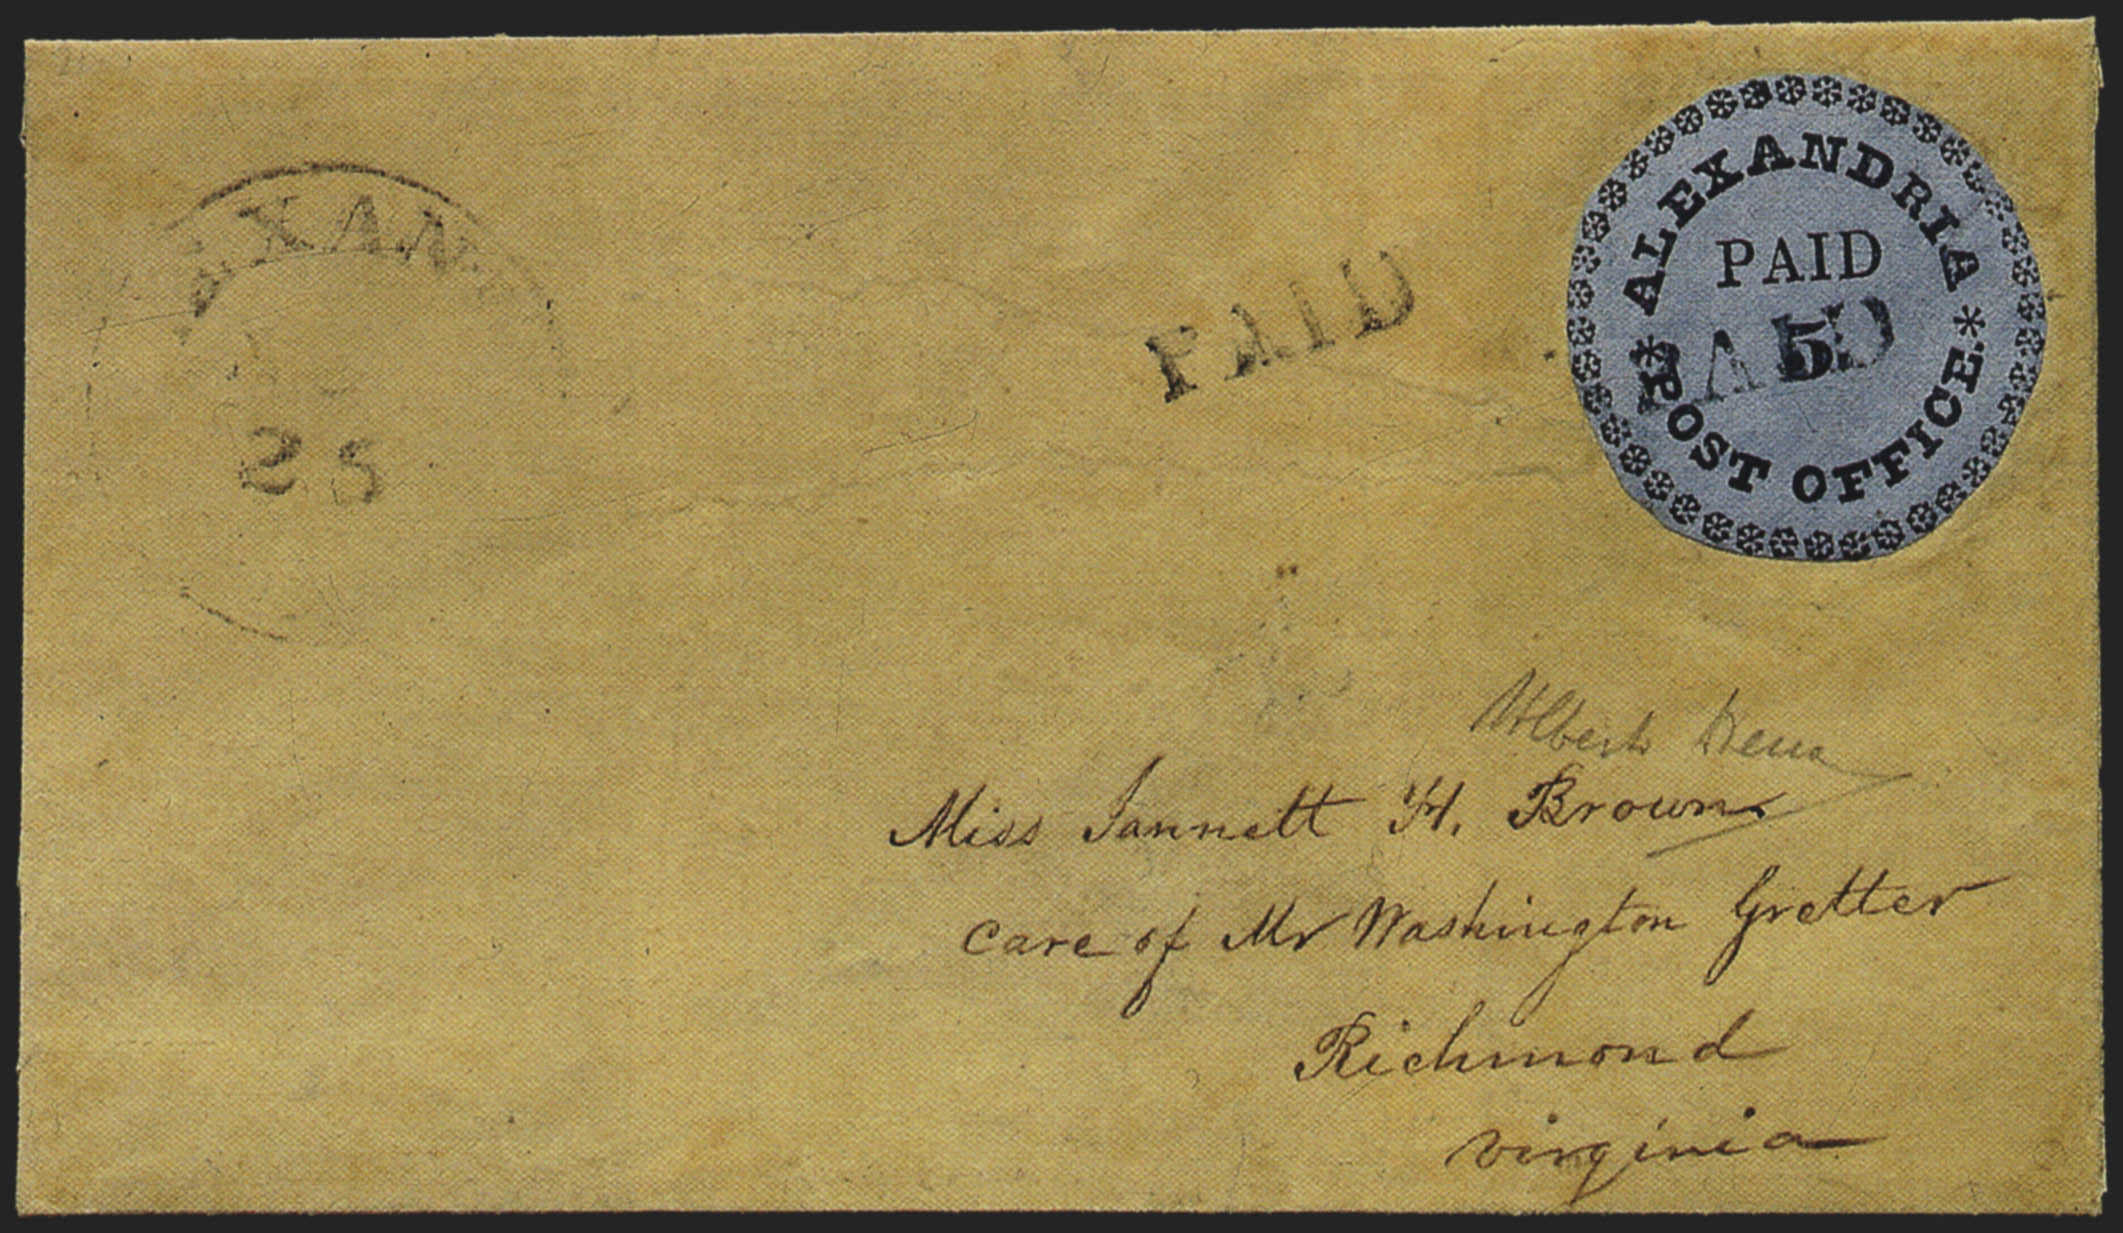 EXAN
25
PAID
* ALEXANDRIA *
PAID
PAID
5
POST OFFICE.
Miss Jannett H. Brown.
care of Mr Washington Gretter
Richmond
virginia